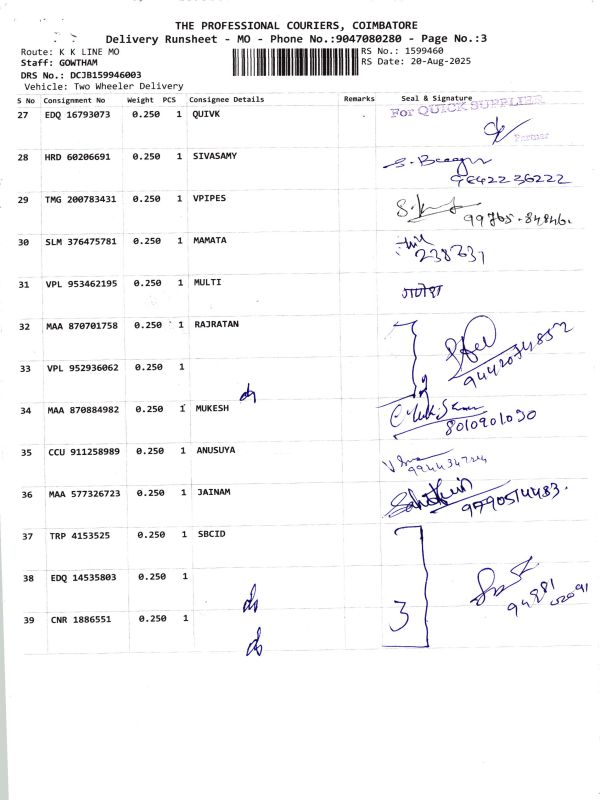 THE PROFESSIONAL COURIERS, COIMBATORE
Delivery Runsheet - MO - Phone No.:9047080280 - Page No.:3
Route: K K LINE MO
RS No.: 1599460
Staff: GOWTHAM
RS Date: 20-Aug-2025
DRS No.: DCJB159946003
Vehicle: Two Wheeler Delivery
S No Consignment No Weight PCS Consignee Details Remarks Seal & Signature
27 EDQ 16793073 0.250 1 QUIVK
For QUICK SUPPLIER
28 HRD 60206691 0.250 1 SIVASAMY
9842236222
29 TMG 200783431 0.250 1 VPIPES
99765-84846.
30 SLM 376475781 0.250 1 MAMATA
238631
31 VPL 953462195 0.250 1 MULTI गणेश
32 MAA 870701758 0.250 1 RAJRATAN
9442074852
33 VPL 952936062 0.250 1
do
34 MAA 870884982 0.250 1 MUKESH
8010901090
35 CCU 911258989 0.250 1 ANUSUYA
36 MAA 577326723 0.250 1 JAINAM
9790514483.
37 TRP 4153525 0.250 1 SBCID
38 EDQ 14535803 0.250 1
do
3
39 CNR 1886551 0.250 1
do